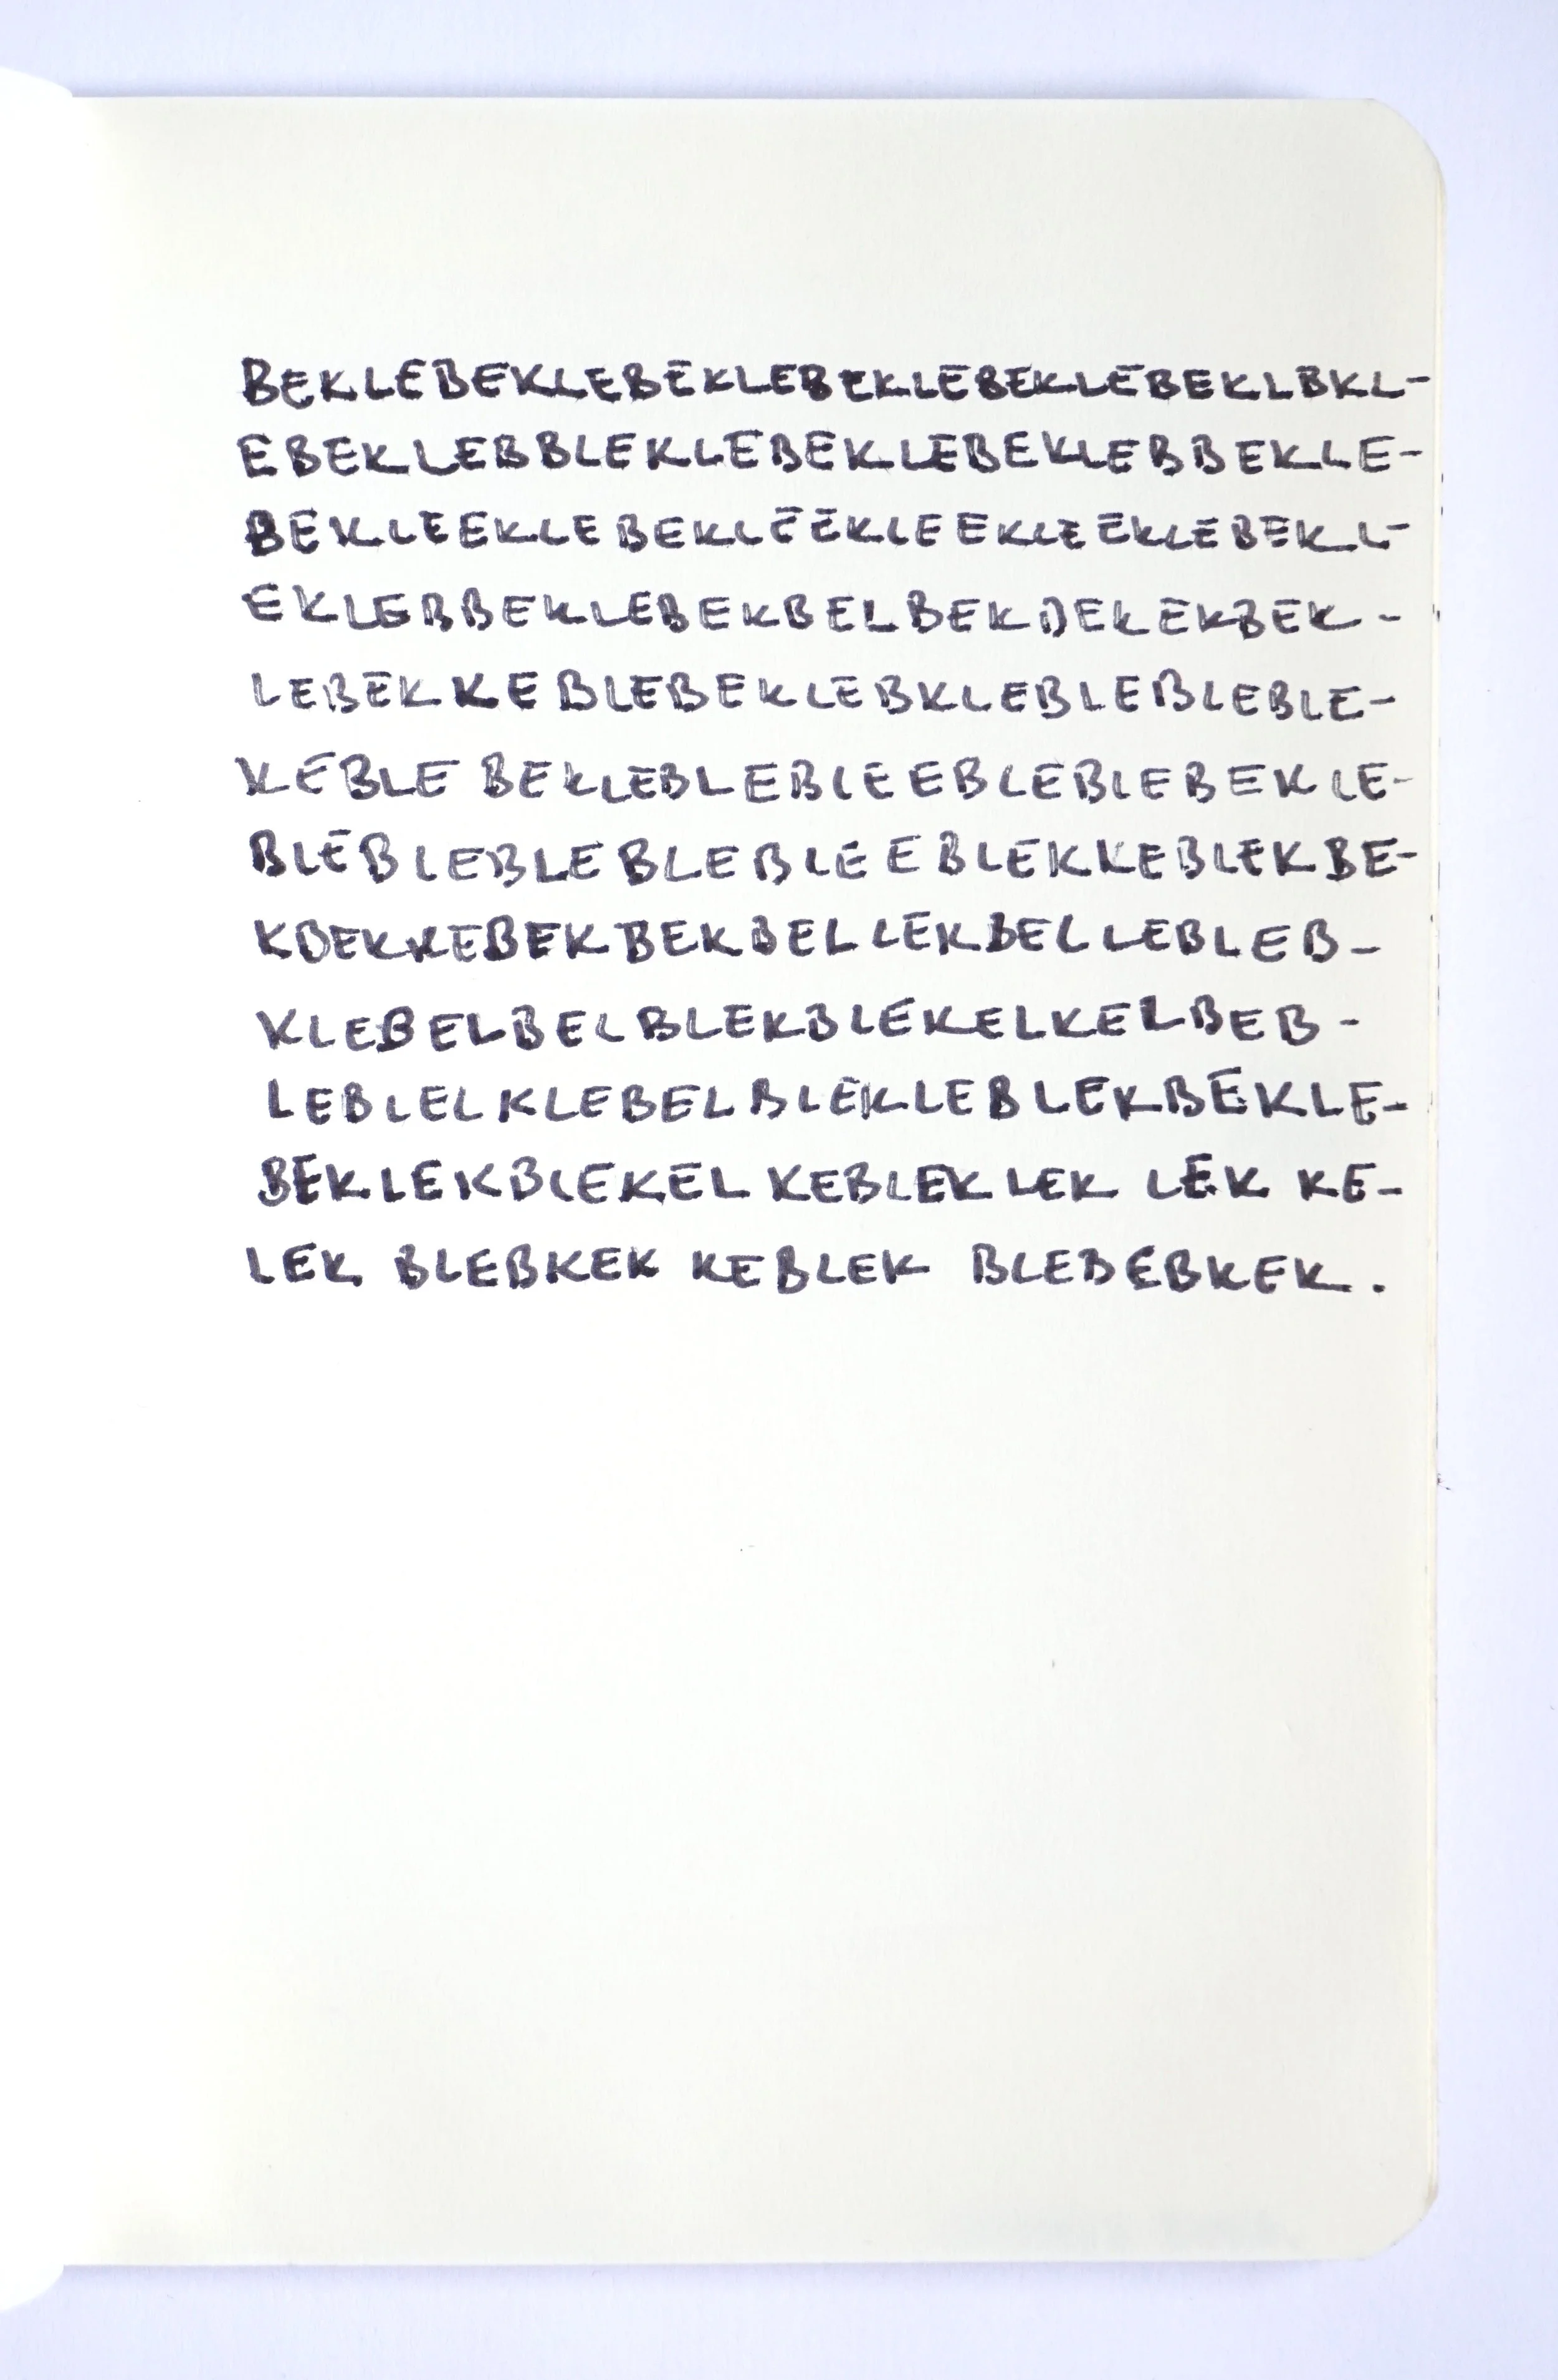 BEKLEBEKLEBEKLEBEKLEBEKLEBEKLBKL-
EBEKLEBBLEKLEBEKLEBEKLEBBEKLE-
BEKLEEKLEBEKLEEKLEEKLEEKLEBEKL-
EKLEBBEKLEBEKBELBEKDEKEKBEK-
LEBEKKEBLEBEKLEBKLEBLEBLEBLE-
KEBLE BEKLEBLEBLEEBLEBLEBEKLE-
BLEBLEBLEBLEBLEEBLEKKEBLEKBE-
KBEKKEBEKBEKBELLEKBELLEBLEB-
KLEBELBELBLEKBLEKELKELBEB-
LEBLELKLEBELBLEKLEBLEKBEKLE-
BEKLEKBLEKEL KEBLEKLEK LEK KE-
LEK BLEBKEK KEBLEK BLEBEBKEK.